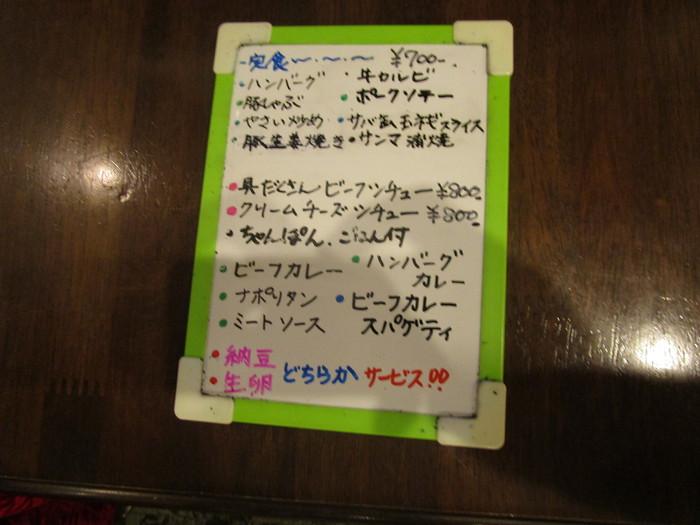 定食～・～・～ ¥700-.
・ハンバーグ ・牛カルビ
・豚しゃぶ ・ポークソテー
・やさい炒め ・サバ缶玉ネギスライス
・豚生姜焼き ・サンマ蒲焼
・具だくさんビーフシチュー ¥800
・クリームチーズシチュー ¥800
・ちゃんぽん、ごはん付
・ビーフカレー ・ハンバーグ
カレー
・ナポリタン ・ビーフカレー
・ミートソース スパゲティ
・納豆
・生卵 どちらか サービス!!